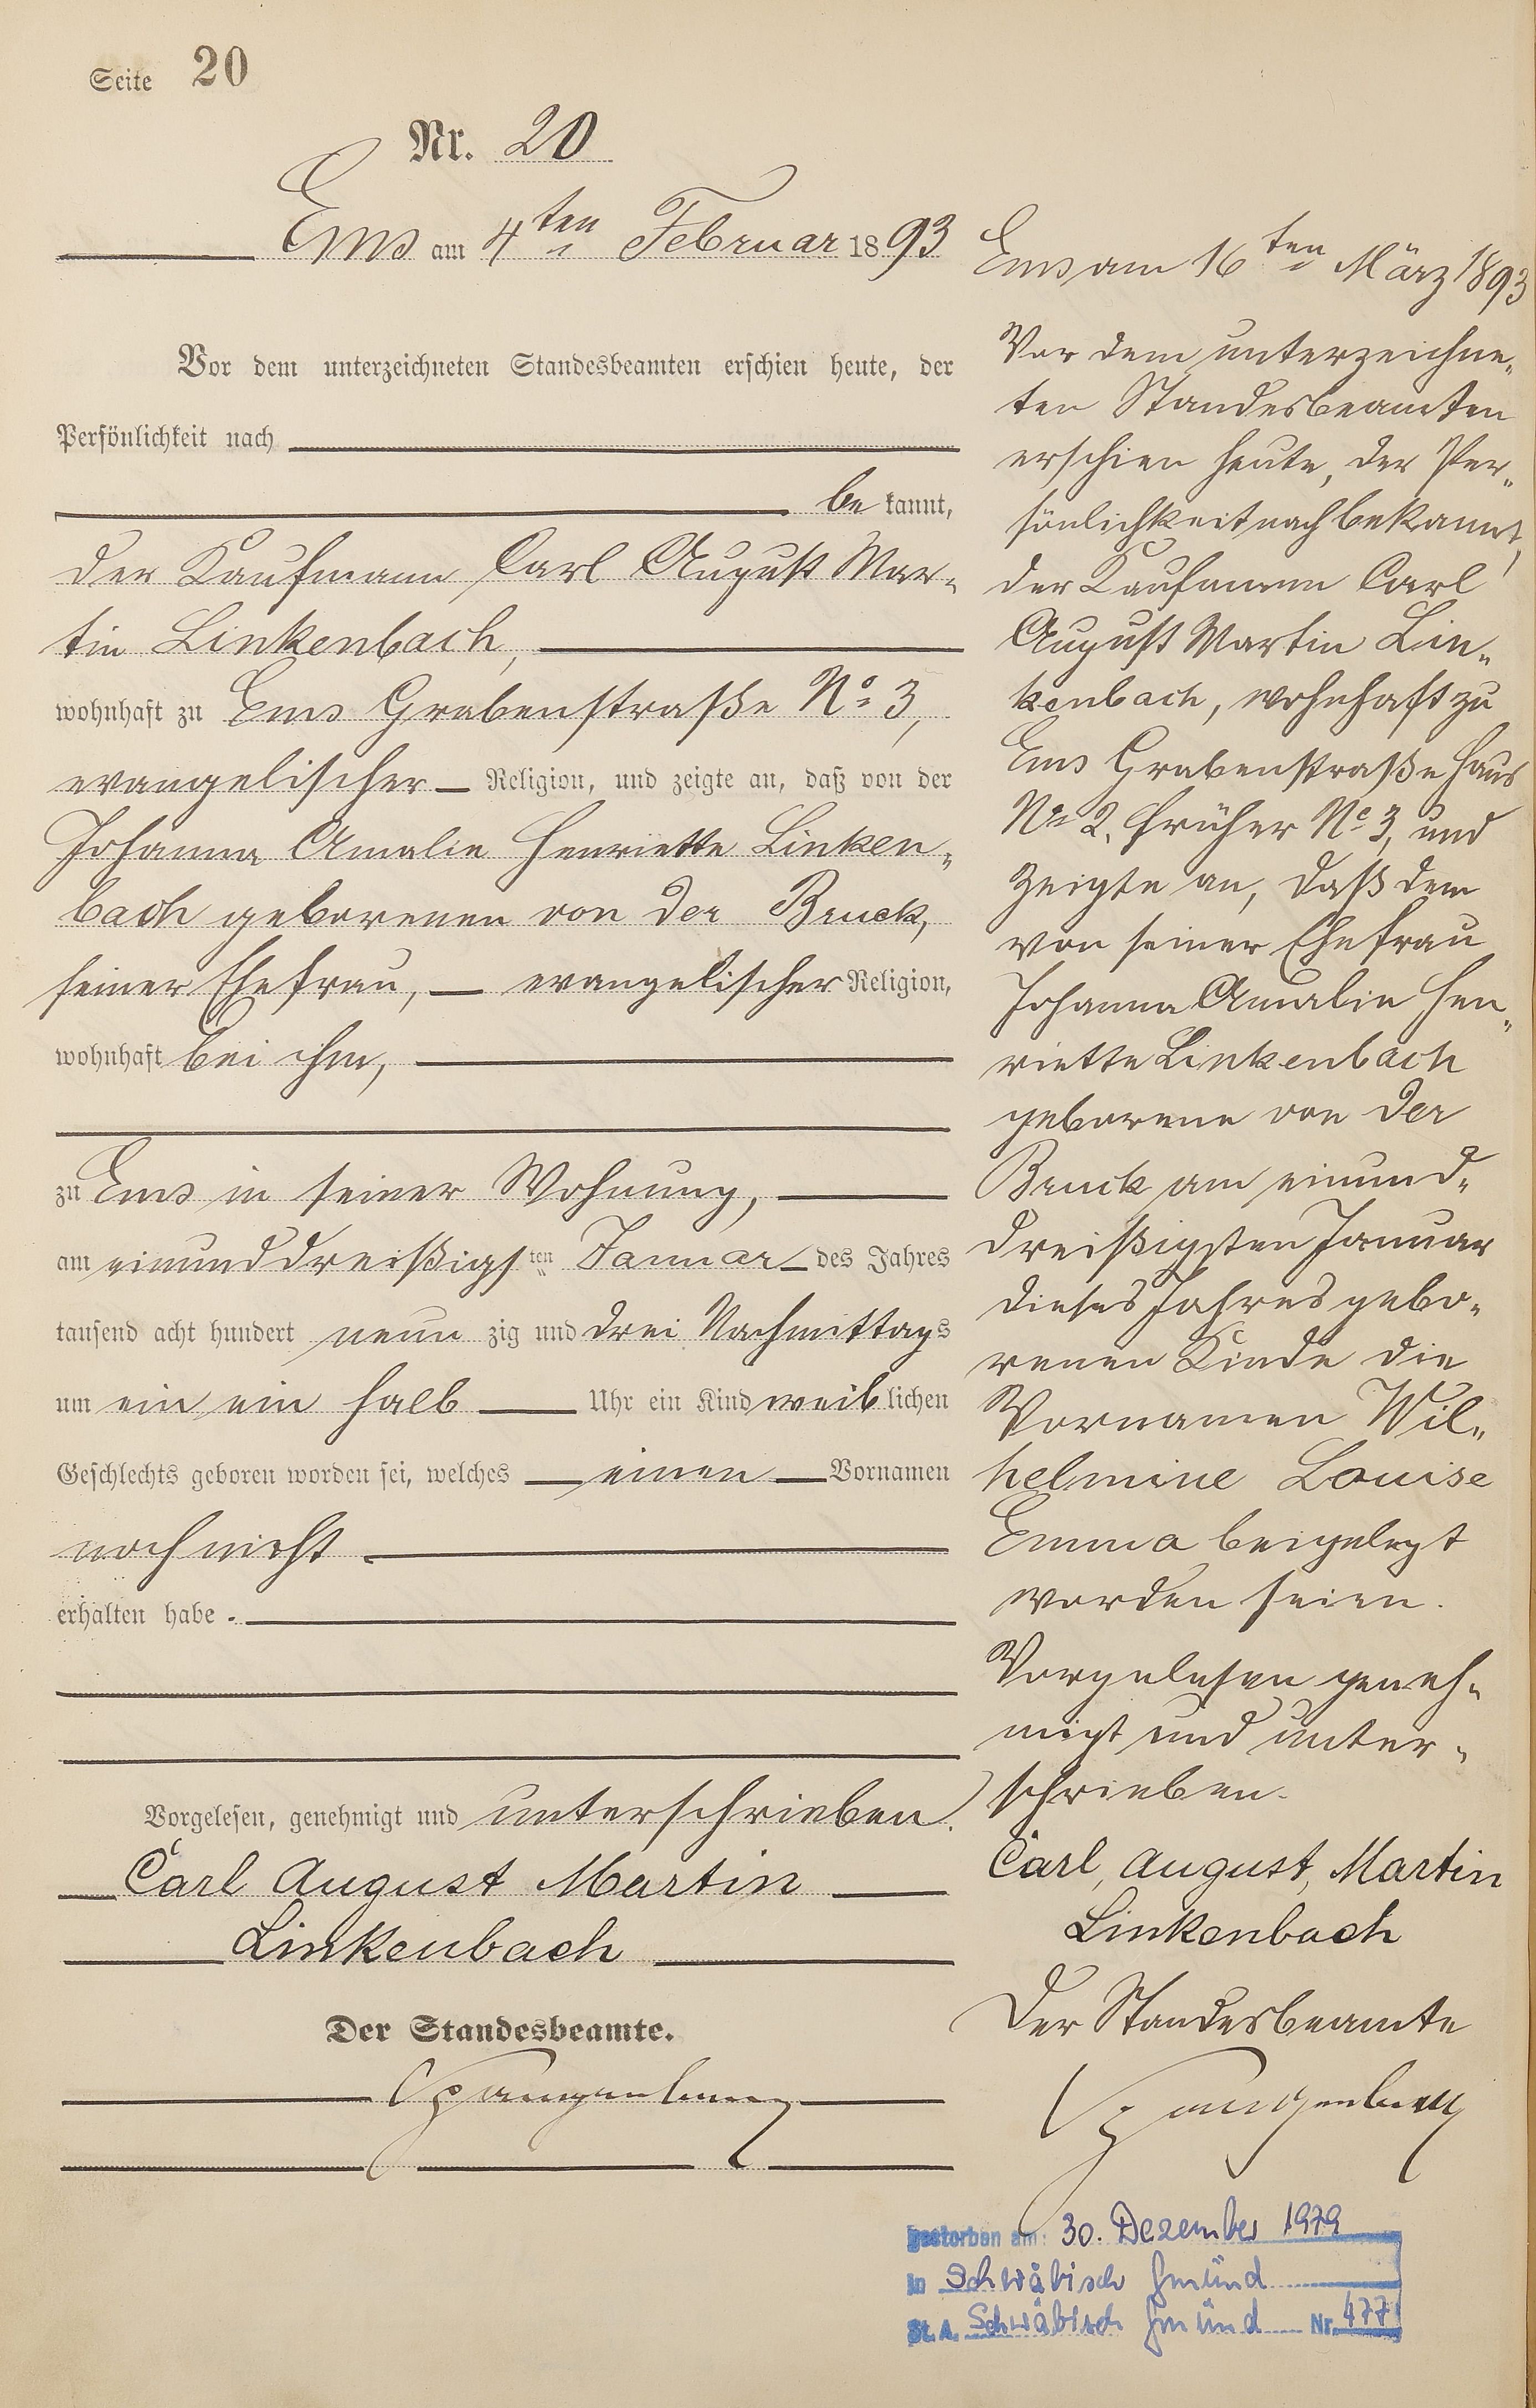 Seite 20
Nr. 20
Ems am 4ten Februar 1893
Vor dem unterzeichneten Standesbeamten erschien heute, der
Persönlichkeit nach
be kannt,
der Kaufmann Carl August Mar-
tin Linkenbach,
wohnhaft zu Ems Grabenstraße No 3,
evangelischer Religion, und zeigte an, daß von der
Johanna Amalie Henriette Linken-
bach geborenen von der Bruck,
seiner Ehefrau, evangelischer Religion,
wohnhaft bei ihm,
zu Ems in seiner Wohnung,
am einunddreißigsten Januar des Jahres
tausend acht hundert neun zig und drei Nachmittags
um ein ein halb Uhr ein Kind weiblichen
Geschlechts geboren worden sei, welches einen Vornamen
noch nicht
erhalten habe.
Vorgelesen, genehmigt und unterschrieben.
Carl August Martin
Linkenbach
Der Standesbeamte.
Spangenberg
Ems am 16ten März 1893
Vor dem unterzeichne-
ten Standesbeamten
erschien heute, der Per-
sönlichkeit nach bekannt,
der Kaufmann Carl
August Martin Lin-
kenbach, wohnhaft zu
Ems Grabenstraße Haus
No 2, früher No 3, und
zeigte an, daß dem
von seiner Ehefrau
Johanna Amalie Hen-
riette Linkenbach
geborene von der
Bruck am einund-
dreißigsten Januar
dieses Jahres gebo-
renen Kinde die
Vornamen Wil-
helmine Louise
Emma beigelegt
worden seien.
Vorgelesen geneh-
migt und unter-
schrieben.
Carl, August, Martin
Linkenbach
Der Standesbeamte
Spangenberg
gestorben am: 30. Dezember 1979
in Schwäbisch Gmünd
St. A. Schwäbisch Gmünd Nr. 477